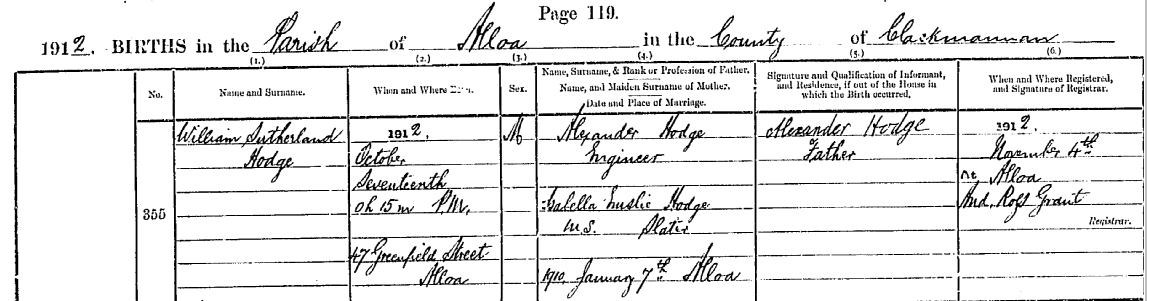 Page 119.
1912. BIRTHS in the Parish of Alloa in the County of Clackmannan
(1.) (2.) (3.) (4.) (5.) (6.)
No.
Name and Surname.
When and Where
Sex.
Name, Surname, & Rank or Profession of Father.
Name, and Maiden Surname of Mother.
Date and Place of Marriage.
Signature and Qualification of Informant,
and Residence, if out of the House in
which the Birth occurred.
When and Where Registered,
and Signature of Registrar.
355
William Sutherland
Hodge
1912,
October
Seventeenth
0h 15m P.M.
47 Greenfield Street
Alloa
M
Alexander Hodge
Engineer
Isabella Hodge
m.s. Slater
1910, January 7th Alloa
Alexander Hodge
Father
1912.
November 4th
At Alloa
And. Ross Grant
Registrar.